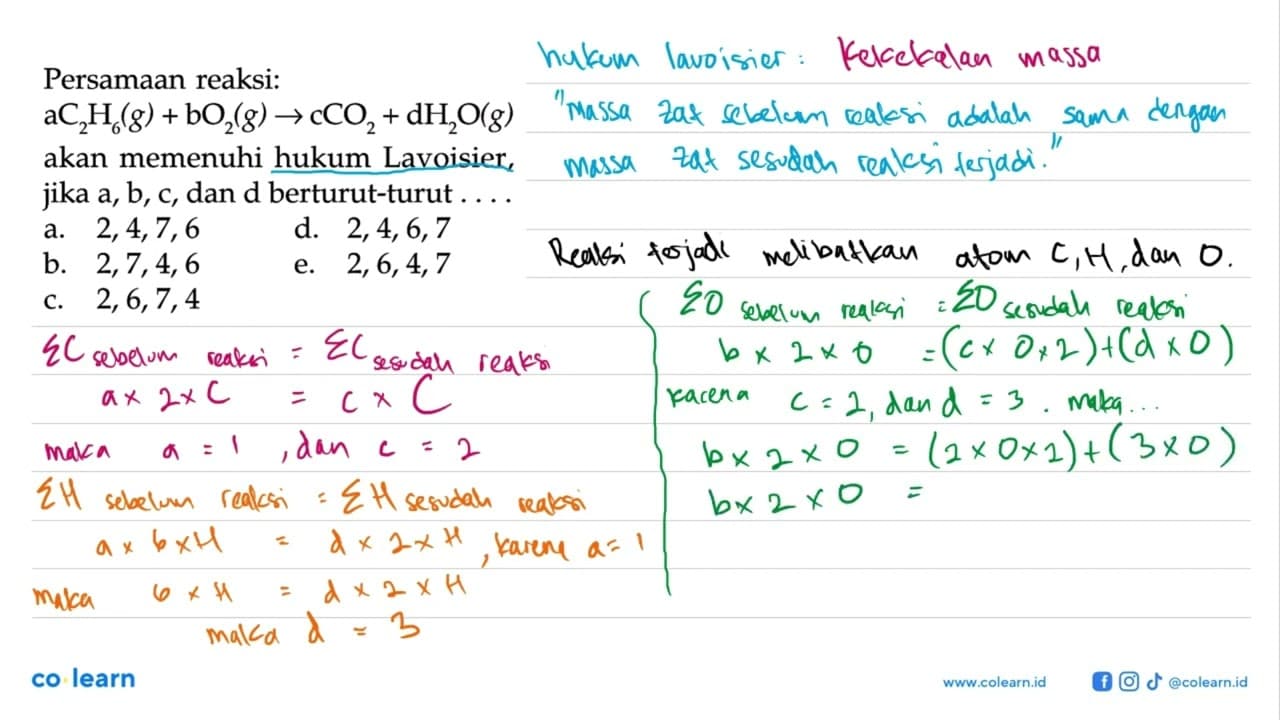 Persamaan reaksi:
aC₂H₆(g) + bO₂(g) → cCO₂ + dH₂O(g)
akan memenuhi hukum Lavoisier,
jika a, b, c, dan d berturut-turut . . . .
a. 2, 4, 7, 6 d. 2, 4, 6, 7
b. 2, 7, 4, 6 e. 2, 6, 4, 7
c. 2, 6, 7, 4
hukum lavoisier : Kekekalan massa
"massa zat sebelum reaksi adalah sama dengan
massa zat sesudah reaksi terjadi."
Reaksi terjadi melibatkan atom C, H, dan O.
ΣC sebelum reaksi = ΣC sesudah reaksi
a x 2 x C = c x C
maka a = 1 , dan c = 2
ΣH sebelum reaksi = ΣH sesudah reaksi
a x 6 x H = d x 2 x H , karena a = 1
maka 6 x H = d x 2 x H
maka d = 3
ΣO sebelum reaksi = ΣO sesudah reaksi
b x 2 x O = (c x O x 2) + (d x O)
karena c = 2, dan d = 3 . maka...
b x 2 x O = (2 x O x 2) + (3 x O)
b x 2 x O =
co learn
www.colearn.id @colearn.id